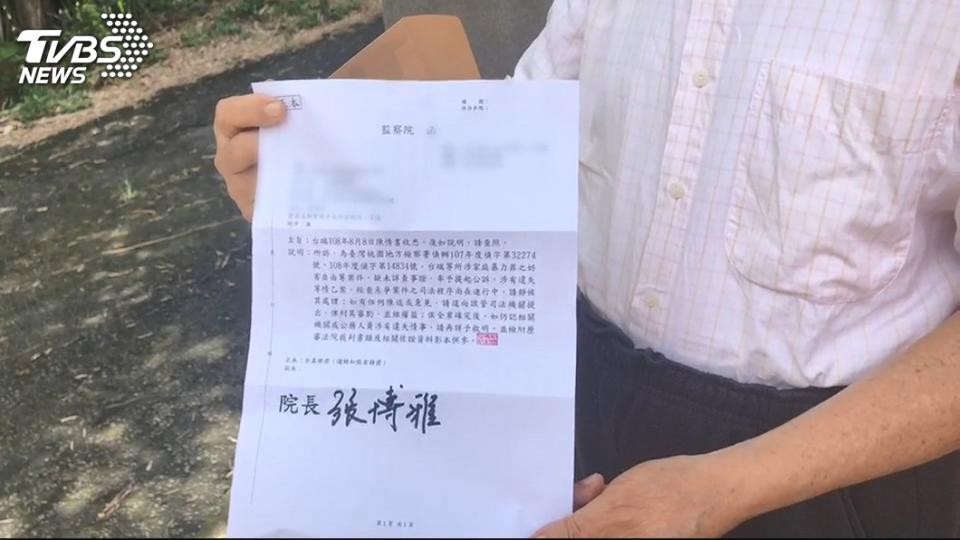 TVBS
NEWS
正本
檔　號：
保存年限：
監察院　函
附件：無
主旨：台端108年8月8日陳情書收悉。復如說明，請查照。
說明：所訴，為臺灣桃園地方檢察署偵辦107年度偵字第32274
號、108年度偵字第14834號，台端等所涉家庭暴力罪之妨
害自由等案件，疑未詳查事證，率予提起公訴，涉有違失
等情乙案，經查系爭案件之司法程序尚在進行中，請靜候
其處理；如有任何陳述或意見，請逕向該管司法機關提
出，俾利其審酌，並維權益；俟全案確定後，如仍認相關
機關或公務人員涉有違失情事，請再詳予敘明，並檢附歷
審法院裁判書類及相關佐證資料影本供參。
正本：
副本：
院長 張博雅
第1頁 共1頁